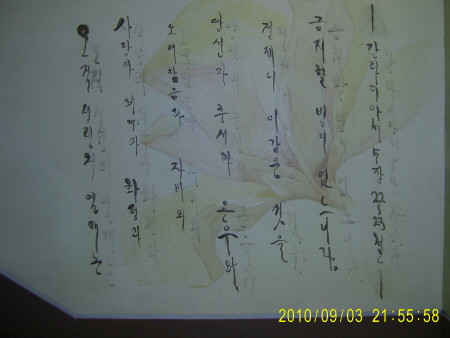 오직 성령의 열매는
사랑과 희락과 화평과
오래참음과 자비와
양선과 충성과 온유와
절제니 이같은 것을
금지할 법이 없느니라.
— 갈라디아서 5장 22,23절 —
2010/09/03 21:55:58